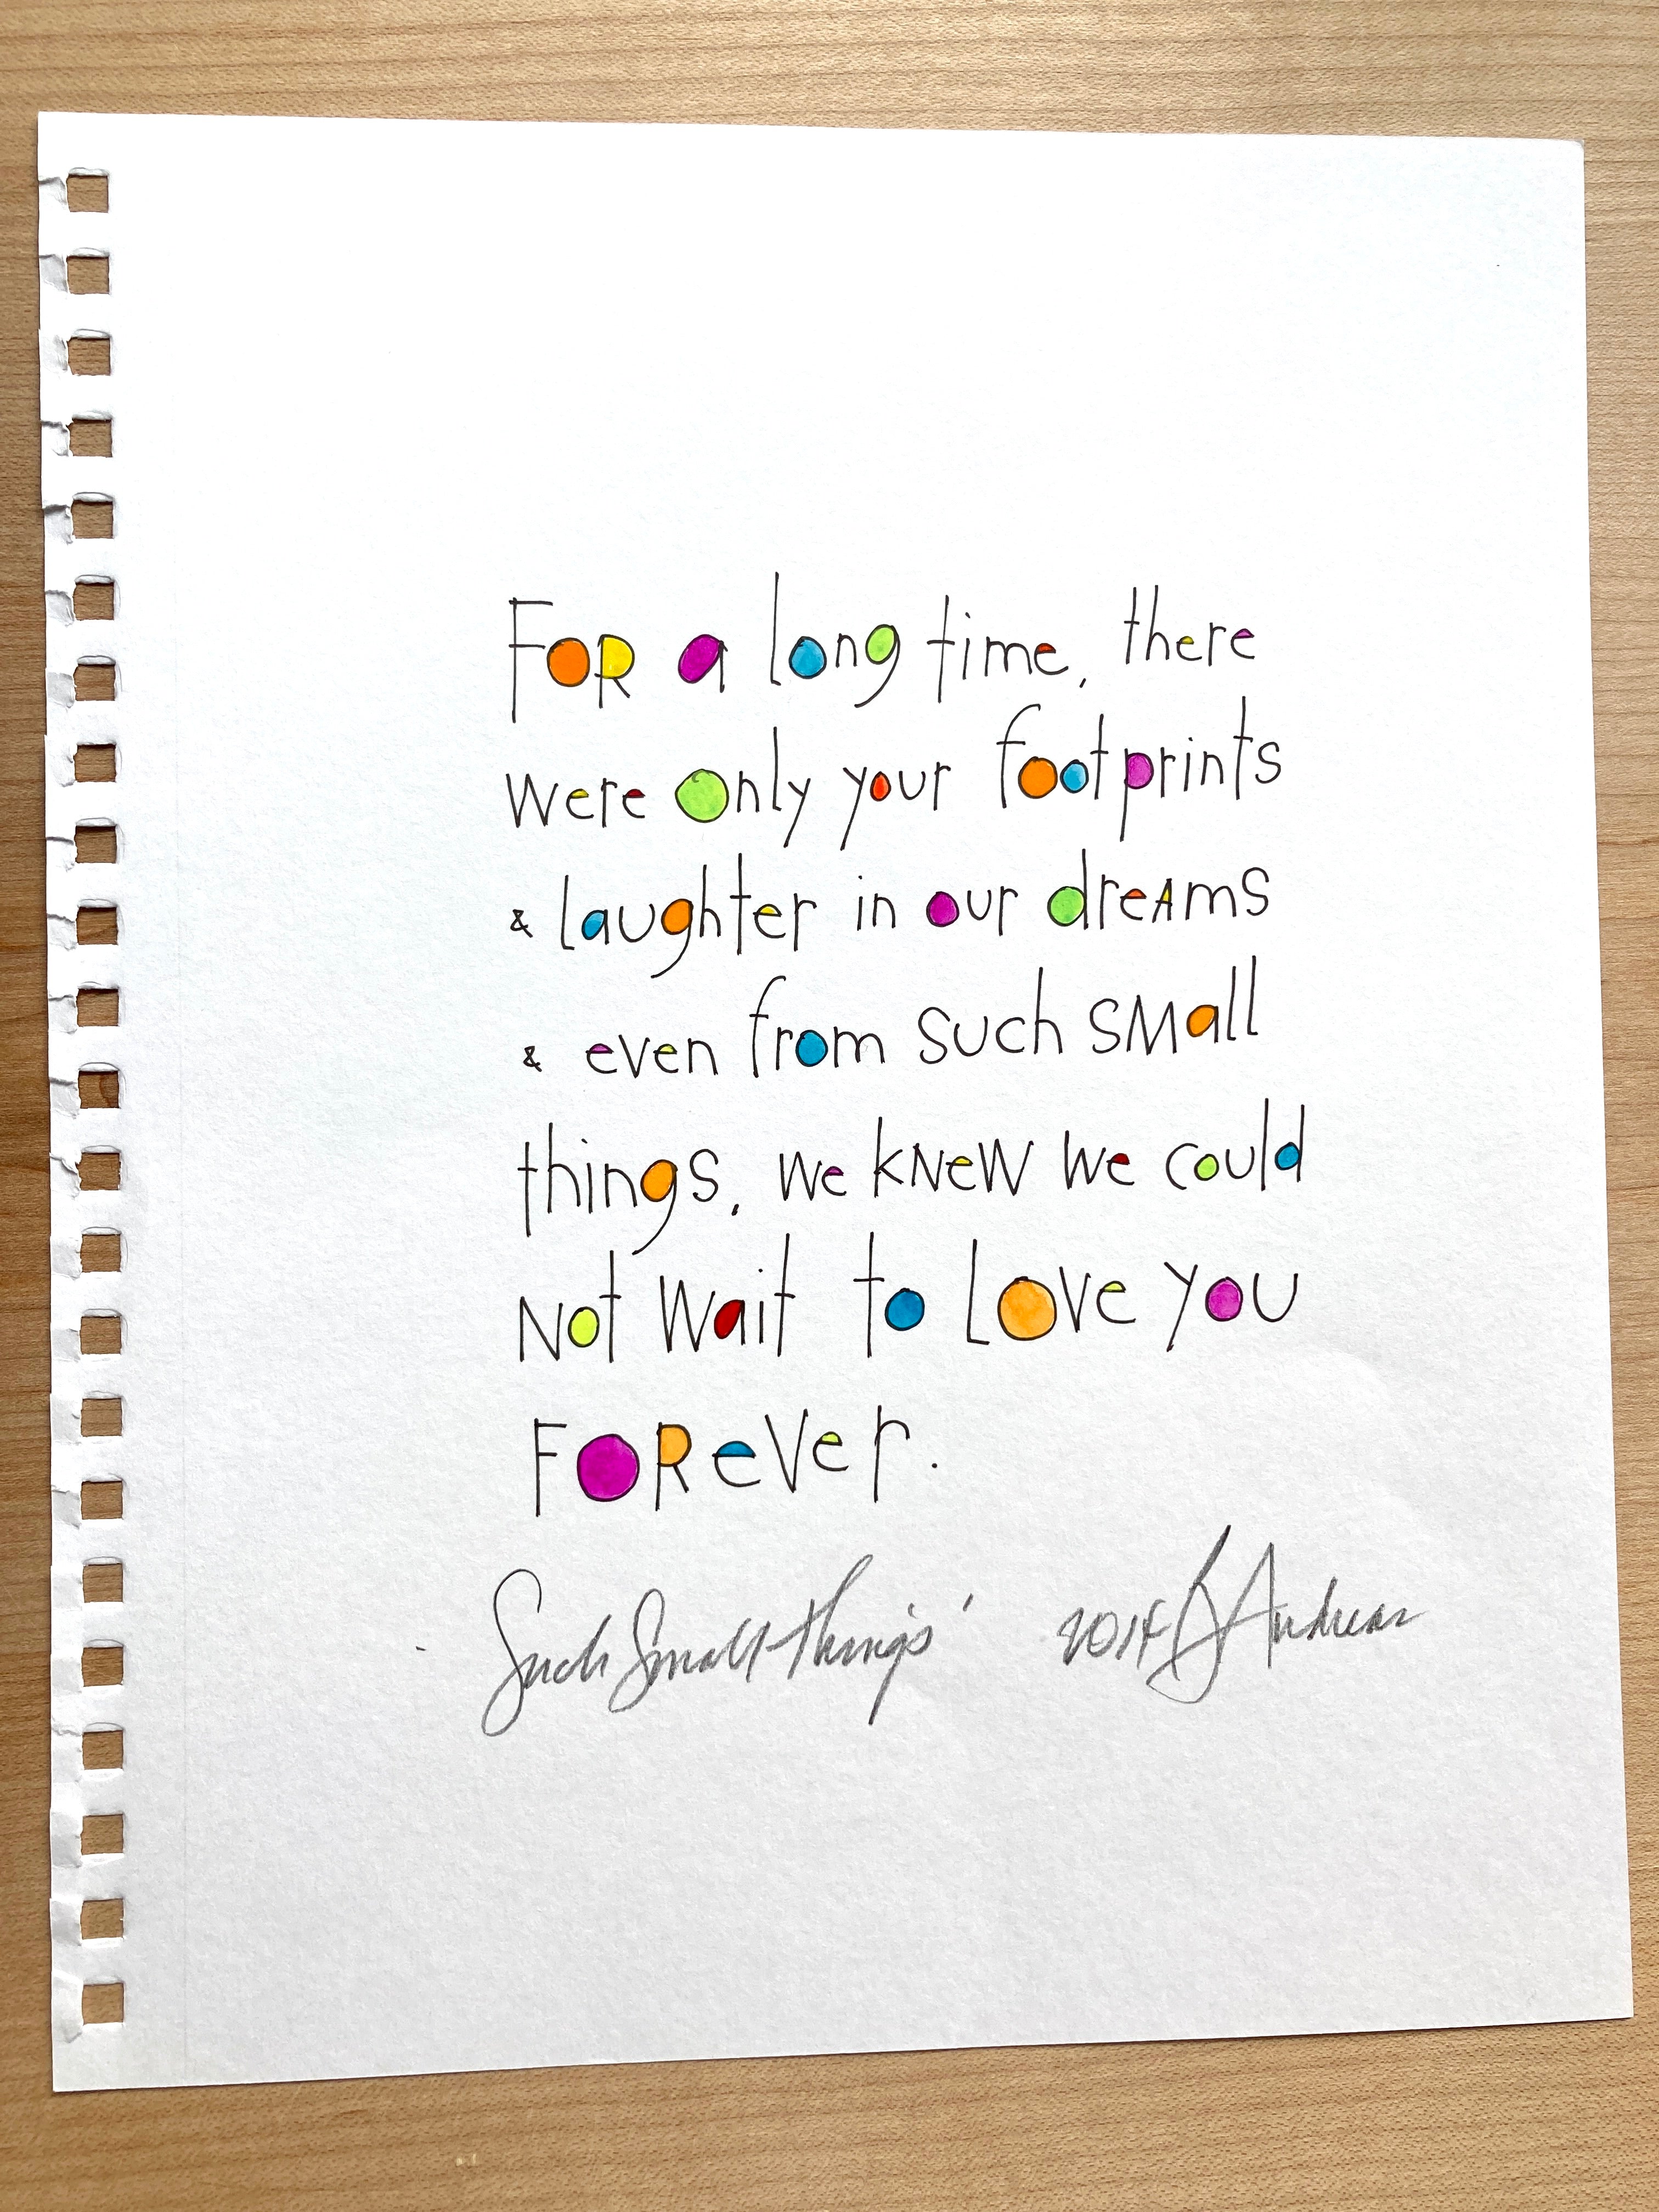 FOR a long time, there
were only your footprints
& laughter in our dreAms
& even from such sMall
things, we kNeW we could
Not wait to Love you
FORever.
'Such Small Things' 2014 Andreas